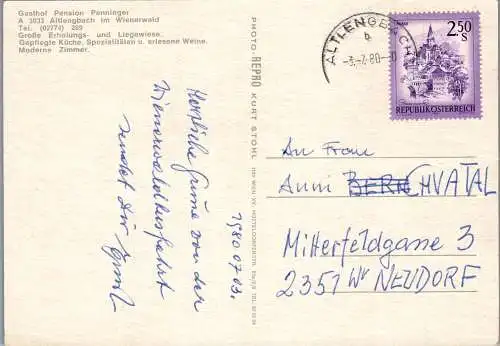 Gasthof Pension Penninger
A 3033 Altlengbach im Wienerwald
Tel. (02774) 289
Große Erholungs- und Liegewiese.
Gepflegte Küche, Spezialitäten u. erlesene Weine.
Moderne Zimmer.
PHOTO-REPRO KURT STOHL
ALTLENGBACH
b
-3.-7.80-
2.50
S
REPUBLIK ÖSTERREICH
1980 07 03.
Herzliche Grüße von der
Wienerwaldausfahrt
sendet Dir
An Frau
Anni CHVATAL
Mitterfeldgasse 3
2351 Wr NEUDORF